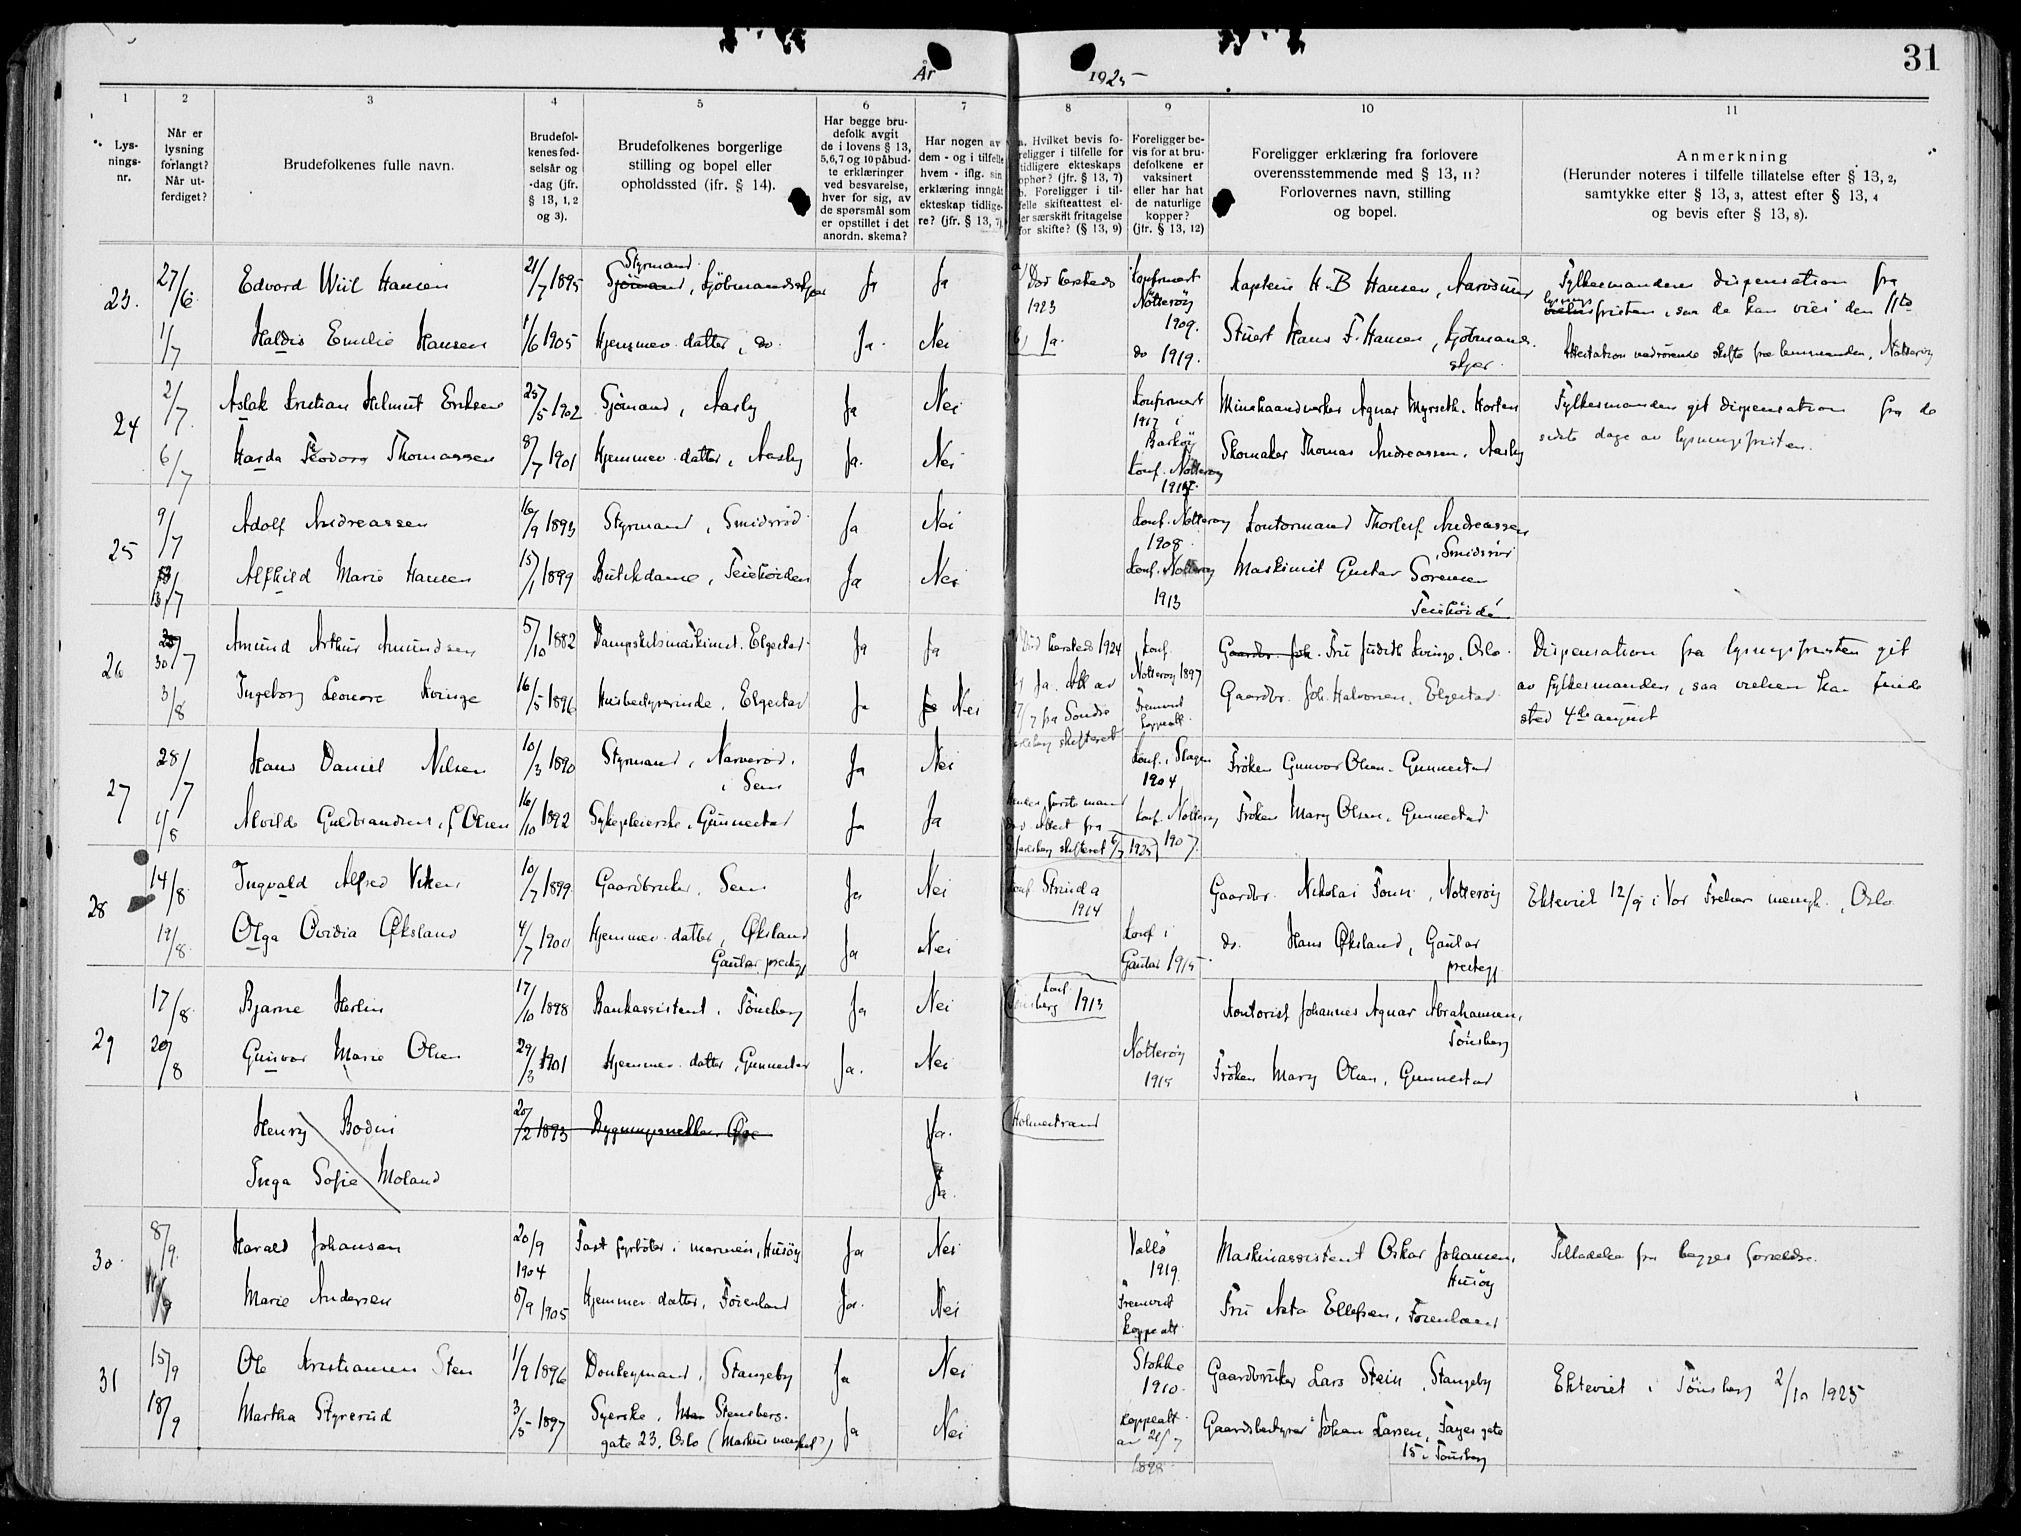 31
År 1925
1 2 3 4 5 6 7 8 9 10 11
Lys-
nings-
nr.
Når er
lysning
forlangt?
Når ut-
ferdiget?
Brudefolkenes fulle navn.
Brudefol-
kenes fød-
selsår og
-dag (jfr.
§ 13, 1, 2
og 3).
Brudefolkenes borgerlige
stilling og bopel eller
opholdssted (jfr. § 14).
Har begge bru-
defolk avgit
de i lovens § 13,
5,6,7 og 10 påbud-
te erklæringer
ved besvarelse,
hver for sig, av
de spørsmål som
er opstillet i det
anordn. skema?
Har nogen av
dem - og i tilfelle
hvem - iflg. sin
erklæring inngåt
ekteskap tidlige-
re? (jfr. § 13, 7)
a. Hvilket bevis fo-
religger i tilfelle for
tidligere ekteskaps
ophør? (jfr. § 13, 7)
b. Foreligger i til-
felle skifteattest el-
ler særskilt fritagelse
for skifte? (§ 13, 9)
Foreligger be-
vis for at bru-
defolkene er
vaksinert
eller har hat
de naturlige
kopper?
(jfr. § 13, 12)
Foreligger erklæring fra forlovere
overensstemmende med § 13, 11?
Forlovernes navn, stilling
og bopel.
Anmerkning
(Herunder noteres i tilfelle tillatelse efter § 13, 2,
samtykke efter § 13, 3, attest efter § 13, 4
og bevis efter § 13, 8).
23. 27/6 Edvard Wiil Hansen 21/7 1895 Styrmand Sjömand, Ja Ja 1923 Konfirmert Nötteröy 1909. Kaptein H. B. Hansen, Fylkesmandens dispensation fra
fristen, saa de kan vies den 11te
1/7 Haldis Emilie Hansen 1/6 1905 Hjemmev. datter, do. Ja. Nei b, Ja. do 1919. Stuert Hans F. Hansen,
24 2/7 Aslak Kristian Helmut Eriksen 25/5 1902 Sjömand, Aasly Ja Nei Konfirmert 1917 i Barköy Agnar Myrseth. Horten Fylkesmanden git dispensation fra de
sidste dage av lysningsfristen.
6/7 Harda Feodora Thomassen 8/7 1901 Hjemmev. datter, Aasly Ja. Nei Konf. Nötteröy Skomaker Thomas Andreassen, Aasly
25 9/7 Adolf Andreassen 16/9 1893 Styrmand, Smidsröd Ja Nei Konf. Nötteröy 1908 Kontormand Thorleif Andreassen, Smidsröd
13/7 Alfhild Marie Hansen 15/1 1899 Butikdame, Teiehöiden Ja Nei Konf. Nötteröy 1913 Maskinist Gustav Sörensen Teiehöiden
26 30/7 Amund Arthur Amundsen 5/10 1882 Dampskibsmaskinist. Elgestad Ja Ja 1924 Konf. Nötteröy 1897 Gaardbr. Joh. Fru Judith Kvinge, Oslo. Dispensation fra lysningsfristen git
av fylkesmanden, saa vielsen kan finde
sted 4de august
3/8 Ingeborg Leonore Kvinge 16/5 1896 Husbestyrerinde, Elgestad Ja Ja Nei b, Ja. Att av 27/7 fra Söndre Jarlsberg skifterett Fremvist koppeatt. Gaardbr. Joh. Halvorsen, Elgestad
27 28/7 Hans Daniel Nilsen 10/3 1890 Styrmand, Narveröd, i Sem Ja Nei Konf. i Slagen 1904 Fröken Gunvor Olsen. Gunnestad
4/8 Alvilde Guldbrandsen, f. Olsen 16/10 1892 Sykepleierske, Gunnestad Ja Ja Hendes forste mand död. Attest fra S. Jarlsberg skifteret 1925 Konf. Nötteröy 1907. Fröken Mary Olsen, Gunnestad
28 14/8 Ingvald Alfred Viken 10/7 1899 Gaardbruker, Sem Ja Nei Konf Strinda 1914 Gaardbr. Nikolai Nötteröy Ekteviet 12/9 i Vor Frelser menigh., Oslo
19/8 Olga Ovidia Öksland 4/7 1900 Hjemmev. datter, Öksland Gaular prestegj Ja Nei Konf i Gaular 1915. do. Hans Öksland, Gaular prestegj
29 17/8 Bjarne Herlin 17/10 1898 Bankassistent, Tönsberg Ja Nei Konf Tönsberg 1913 Kontorist Johannes Agnar Abrahamsen, Tönsberg
20/8 Gunvor Marie Olsen 29/3 1901 Hjemmev. datter, Gunnestad Ja. Nei Nötteröy 1915 Fröken Mary Olsen, Gunnestad
Henry Bodin 20/2 1893 Bygningssnekker Ja. Holmestrand
Inga Sofie Moland Ja.
30. 8/9 Harald Johansen 20/9 1904 Fast fyrböter i marinen, Husöy Ja Nei Vallö 1919. Maskinassistent Oskar Johansen, Husöy Tilladelse fra begges forældre.
Marie Andersen 5/9 1905 Hjemmev. datter, Föienland Ja. Nei Fremvist koppeatt Fru Asta Ellefsen, Föienland
31 15/9 Ole Kristiansen Sten 1/9 1896 Donkeymand, Stangeby Ja Nei Stokke 1910. Gaardbruker Lars Stein, Stangeby Ekteviet i Tönsberg 2/10 1925
18/9 Martha Styrerud 3/5 1897 Syerske, Stensberg. Ja Nei Koppeatt. av 21/7 1898 Gaardsbestyrer Johan Larsen, Fayes gate
gate 23, Oslo (Markus menighet) 15, Tönsberg